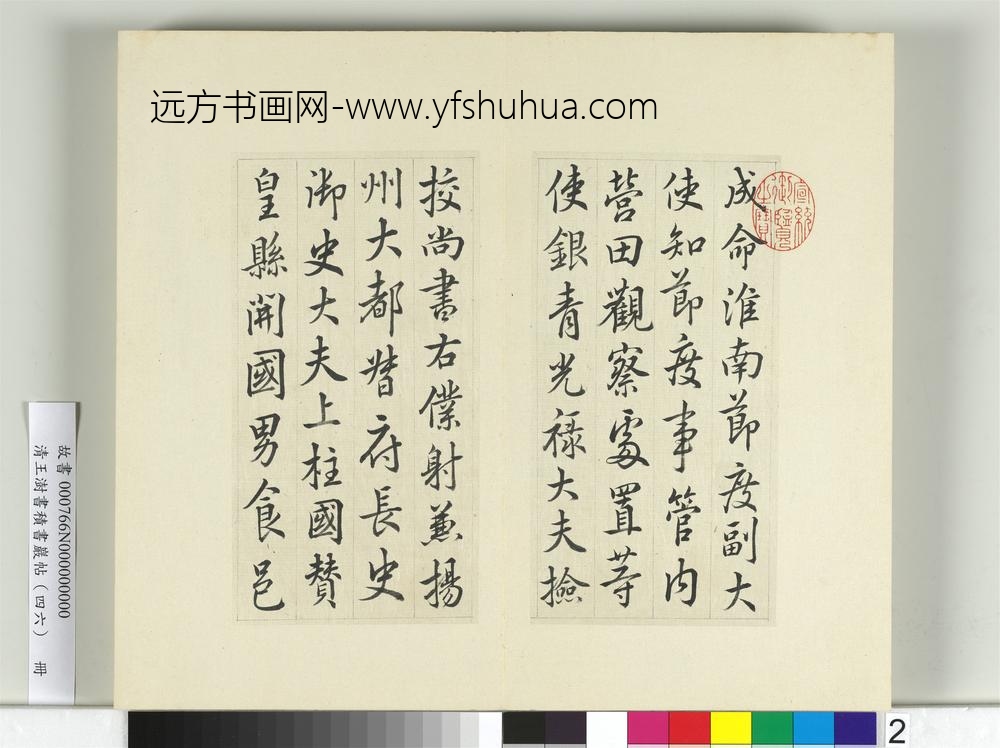 远方书画网-www.yfshuhua.com
成命淮南節度副大
使知節度事管内
營田觀察處置等
使銀青光祿大夫撿
挍尚書右僕射兼揚
州大都督府長史
御史大夫上柱國賛
皇縣開國男食邑
宣統御覽之寶
故書000766N000000000
清王澍書積書巖帖（四六） 冊
2